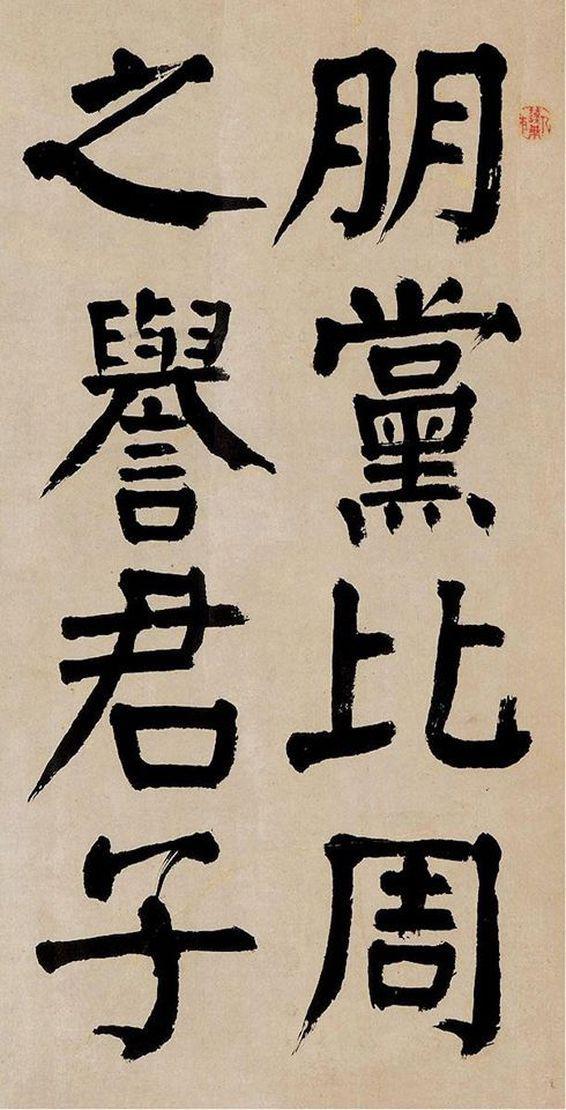 朋黨比周
之譽君子